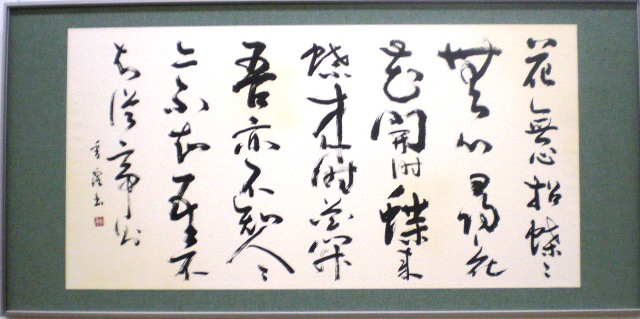 花無心招蝶〻
無心尋花
花開時蝶来
蝶来時花開
吾亦不知人〻
亦不知吾不
知従帝則
書